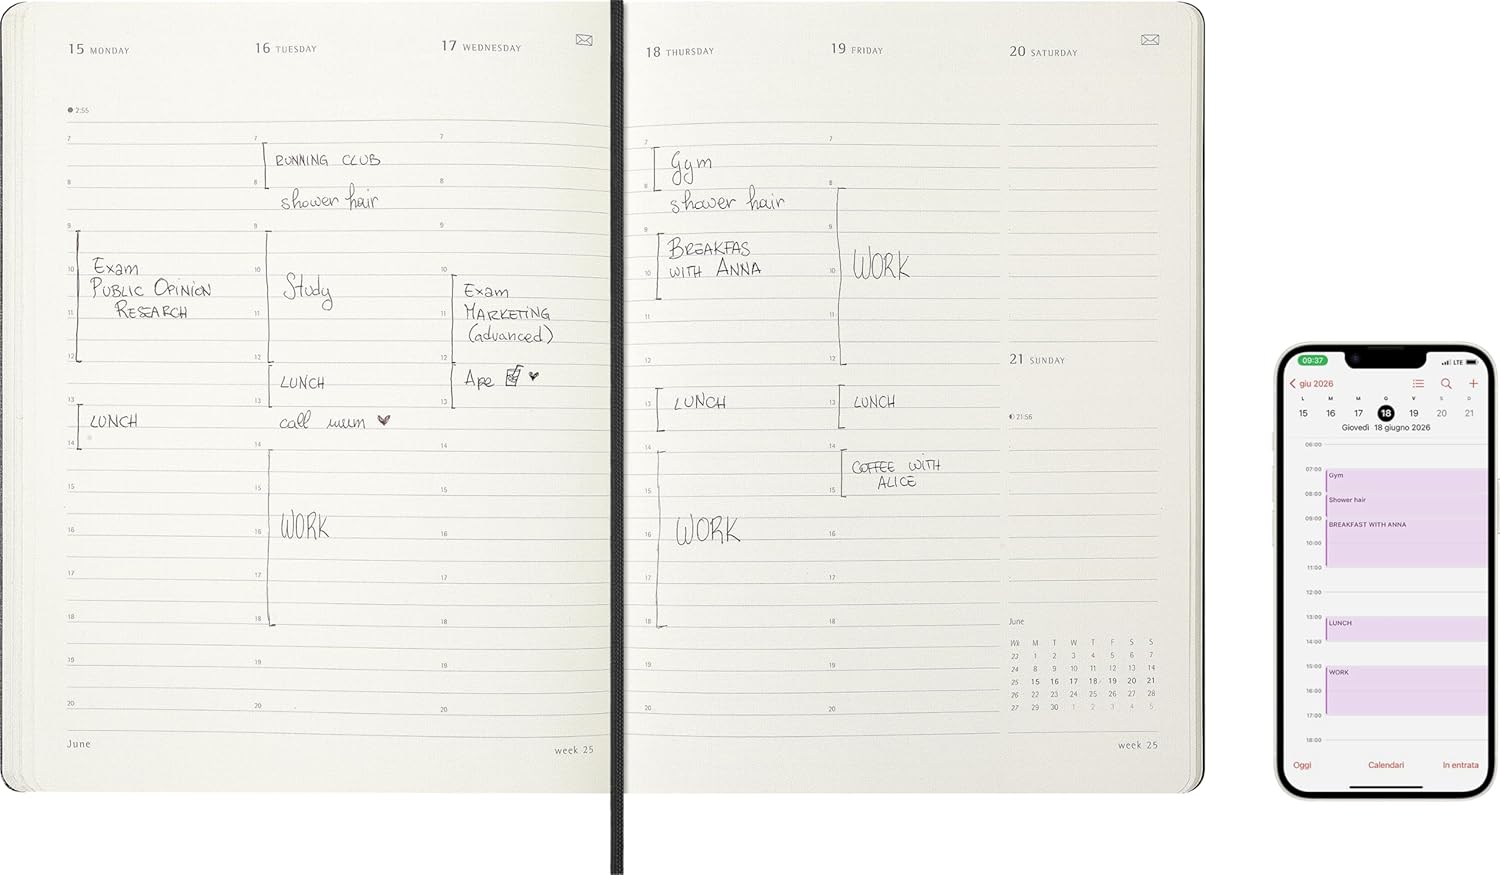 15 MONDAY
2:55
7
8
9
10
11
12
13
14
15
16
17
18
19
20
Exam
PUBLIC OPINION
RESEARCH
LUNCH
June
16 TUESDAY
7
8
9
10
11
12
13
14
15
16
17
18
19
20
RUNNING CLUB
shower hair
Study
LUNCH
call mum
WORK
17 WEDNESDAY
7
8
9
10
11
12
13
14
15
16
17
18
19
20
Exam
MARKETING
(advanced)
Ape
week 25
18 THURSDAY
7
8
9
10
11
12
13
14
15
16
17
18
19
20
Gym
shower hair
BREAKFAS
WITH ANNA
LUNCH
WORK
19 FRIDAY
7
8
9
10
11
12
13
14
15
16
17
18
19
20
WORK
LUNCH
COFFEE WITH
ALICE
20 SATURDAY
21 SUNDAY
21:56
June
Wk M T W T F S S
23 1 2 3 4 5 6 7
24 8 9 10 11 12 13 14
25 15 16 17 18 19 20 21
26 22 23 24 25 26 27 28
27 29 30 1 2 3 4 5
week 25
09:37
LTE
giu 2026
L M M G V S D
15 16 17 18 19 20 21
Giovedì 18 giugno 2026
06:00
07:00
Gym
08:00
Shower hair
09:00
BREAKFAST WITH ANNA
10:00
11:00
12:00
13:00
LUNCH
14:00
15:00
WORK
16:00
17:00
18:00
Oggi Calendari In entrata